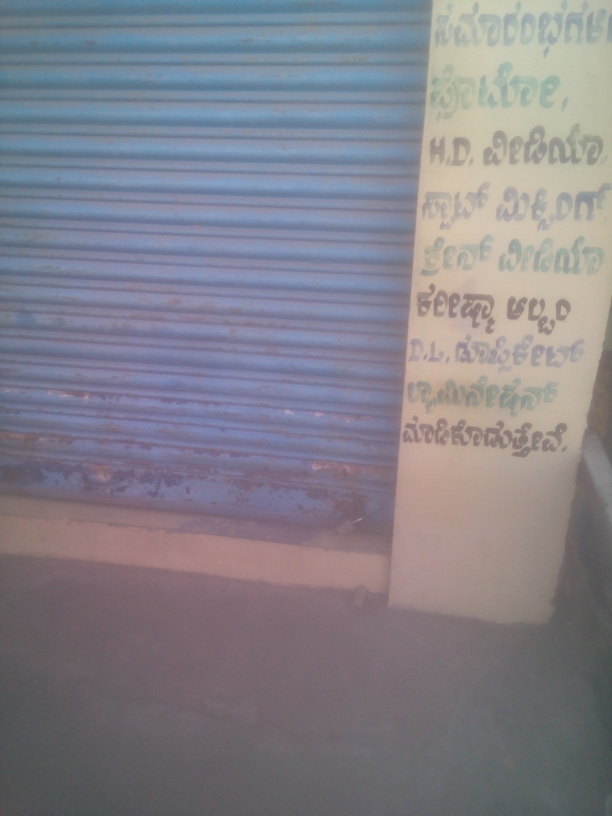 ಸಮಾರಂಭಗಳ
ಫೋಟೋ,
H.D. ವೀಡಿಯೊ
ಸ್ಪಾಟ್ ಮಿಕ್ಸಿಂಗ್
ಕ್ರೇನ್ ವೀಡಿಯೊ
ಕರೀಷ್ಮಾ ಅಲ್ಬಂ
D.L. ಡೂಪ್ಲಿಕೇಟ್
ಲ್ಯಾಮಿನೇಷನ್
ಮಾಡಿಕೊಡುತ್ತೇವೆ.